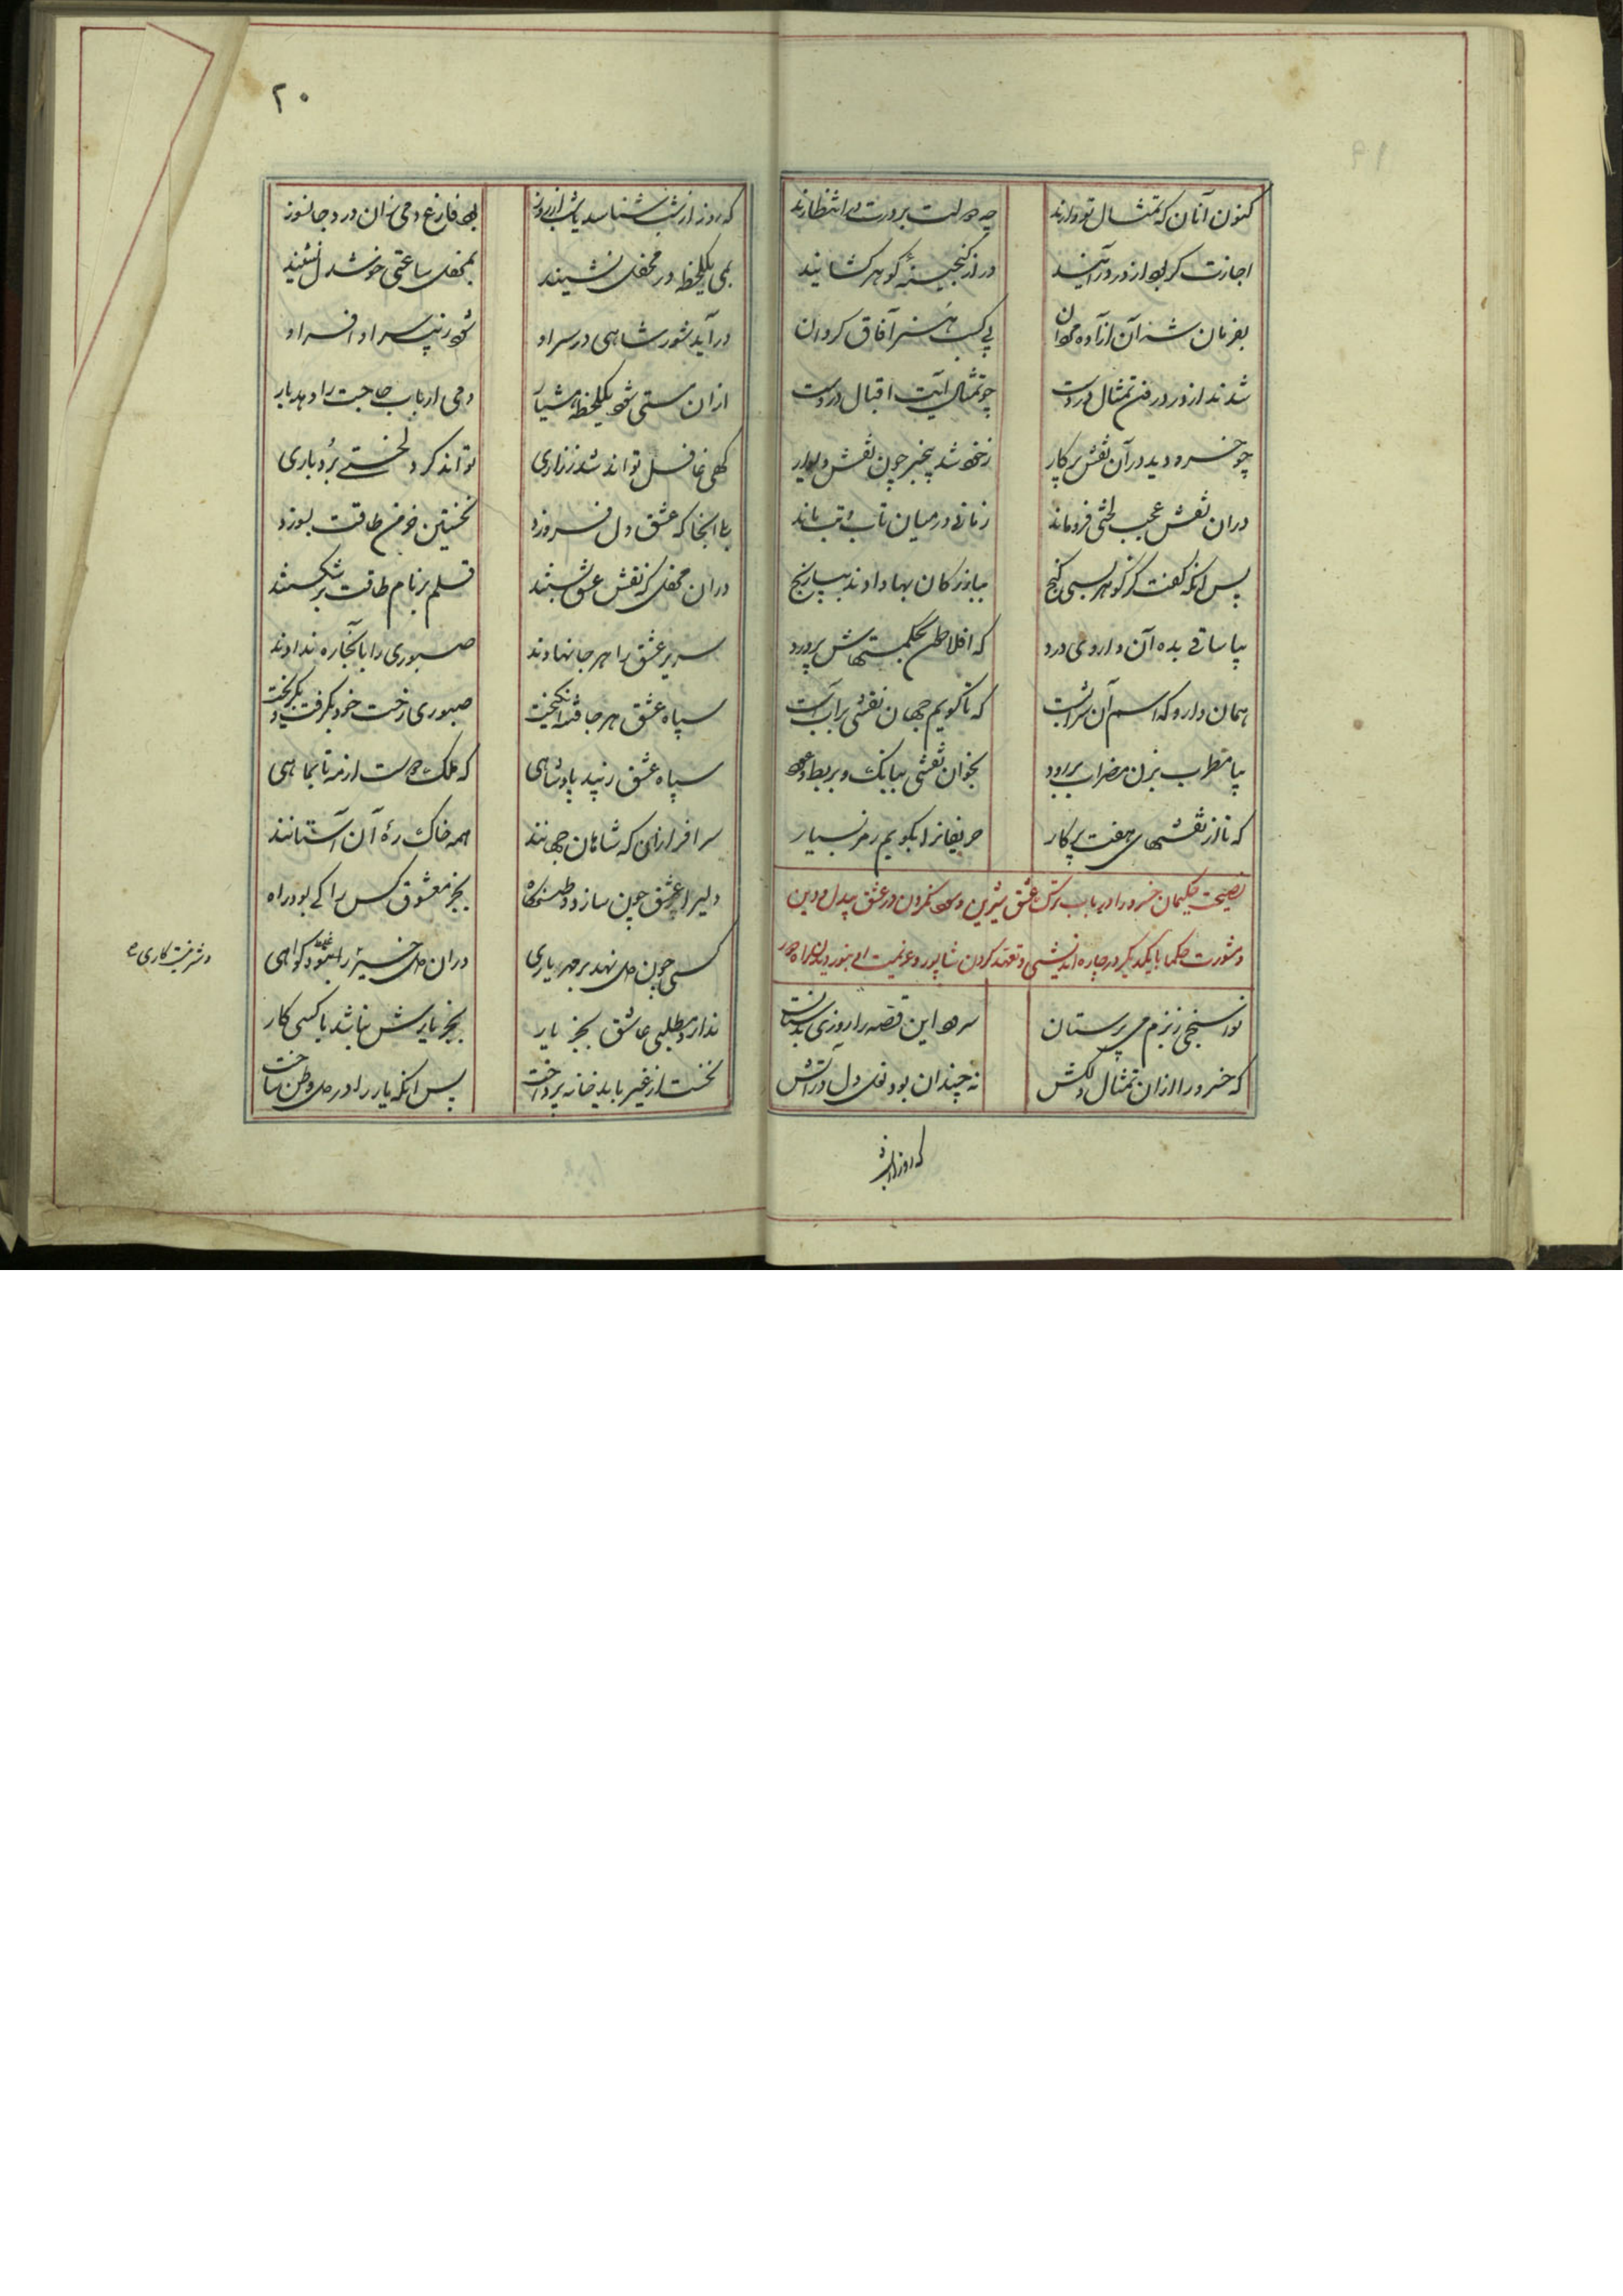 کنون آنان که تمثال تو دارند چه دولت بر درت در انتظارند
اجازت گر بود از در درآیند در از گنجینهٔ گوهر گشایند
بفرمان شه آن آزاده مردان پی کسب هنر آفاق گردان
شدند از در در فن تمثال در دست چو تمثال آیت اقبال در دست
چو خسرو دید در آن نقش پرکار ز خود شد بیخبر چون نقش دیوار
در آن نقش عجب لختی فرو ماند زمانی در میان تاب و تب ماند
پس آنگه گفت کز گوهر بسی گنج بیاوردگان بها دادند بی رنج
بیا ساقی بده آن داروی درد که افلاطون بحکمتهاش پرورد
همان دارو که اسم آن شرابست که تا گویم جهان نقشی بر آبست
بیا مطرب بزن مضراب بر رود بخوان نقشی ببانگ و بربط و عود
که تا از نقشهای هفت پرکار حریفانرا بگویم رمز بسیار
نصیحت حکیمان خسرو را در باب ترک عشق شیرین و سود نکردن در عشق بیدل و دین
و مشورت حکما با یکدیگر در چاره اندیشی و تعهد کردن شاپور و عزیمت او
نوا سنجی ز بزم می پرستان سرود این قصه را روزی بدستان
که خسرو را از آن تمثال دلکش نه چندان بود نعل دل در آتش
که روز از شب
۲۰
که روز از شب شناسد یا شب از روز بود فارغ دمی زان درد جانسوز
همی یکلحظه در محفل نشیند بمحفل ساعتی خوشدل نشیند
درآید شور شاهی در سر او شود زیب سر او افسر او
از آن مستی شود یکلحظه هشیار دمی ارباب حاجت را دهد بار
گهی غافل تواند شد ز زاری تواند کرد لختی بردباری
بلی آنجا که عشق دل فروزد نخستین خرمن طاقت بسوزد
در آن محفل که نقش عشق بستند قلم بر نام طاقت بر شکستند
سریر عشق را هر جا نهادند صبوری را به آنجا ره ندادند
سپاه عشق هر جا فتنه انگیخت صبوری رخت خود بگرفت و بگریخت
سپاه عشق زیبد پادشاهی که ملک اوست از مه تا بماهی
سرافرازان که شاهان جهانند همه خاک ره آن آستانند
دلیرا عشق چون سازد وطنگاه بجز معشوق کس را کی بود راه
کسی چون دل نهد بر مهر یاری در آن دل غیر را نبود گواهی
ندارد مطلبی عاشق بجز یار بجز یارش نباشد با کسی کار
نخست از غیر باید خانه پرداخت پس آنگه یار را در دل وطن ساخت